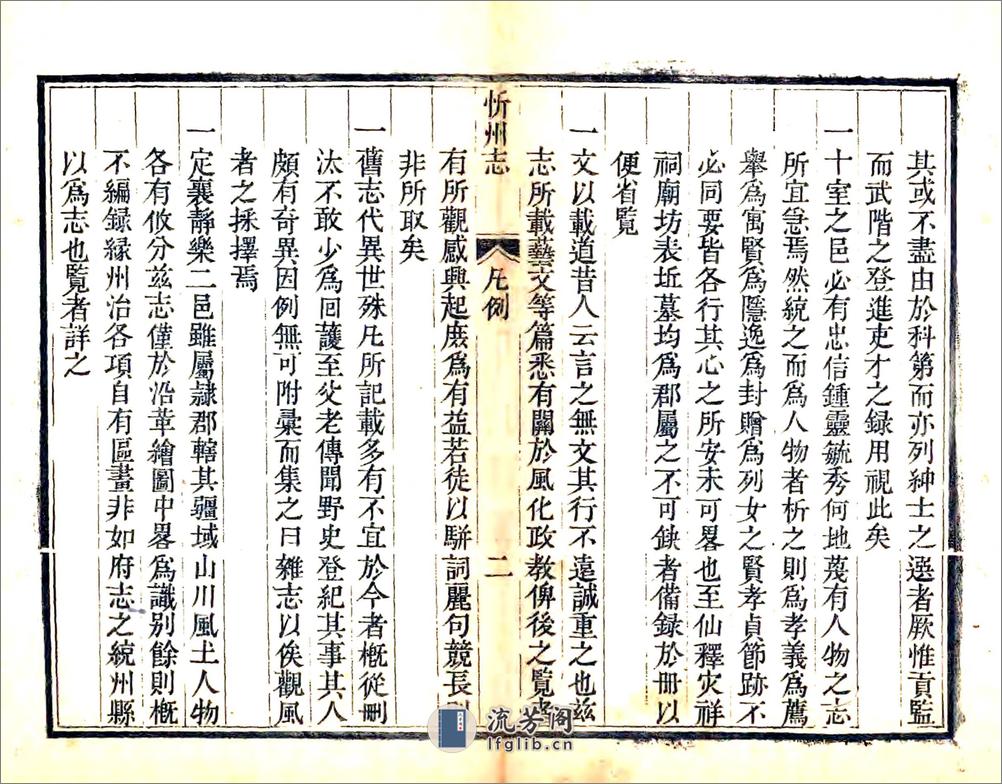 其或不盡由於科第而亦列紳士之選者厥惟貢監
而武階之登進吏才之録用視此矣
一十室之邑必有忠信鍾靈毓秀何地蔑有人物之志
所宜急焉然統之而爲人物者析之則爲孝義爲薦
舉爲寓賢爲隱逸爲封贈爲列女之賢孝貞節跡不
必同要皆各行其心之所安未可畧也至仙釋灾祥
祠廟坊表坵墓均爲郡屬之不可缺者備録於冊以
便省覽
一文以載道昔人云言之無文其行不遠誠重之也兹
志所載藝文等篇悉有關於風化政教俾後之覽者
忻州志 凡例 二
有所觀感興起庶爲有益若徒以駢詞麗句競長則
非所取矣
一舊志代異世殊凡所記載多有不宜於今者槪從刪
汰不敢少爲回護至父老傳聞野史登紀其事其人
頗有奇異因例無可附彚而集之曰雜志以俟觀風
者之採擇焉
一定襄靜樂二邑雖屬隷郡轄其疆域山川風土人物
各有攸分兹志僅於沿革繪圖中畧爲識别餘則槪
不編録縁州治各項自有區畫非如府志之統州縣
以爲志也覽者詳之
流芳阁
lfglib.cn